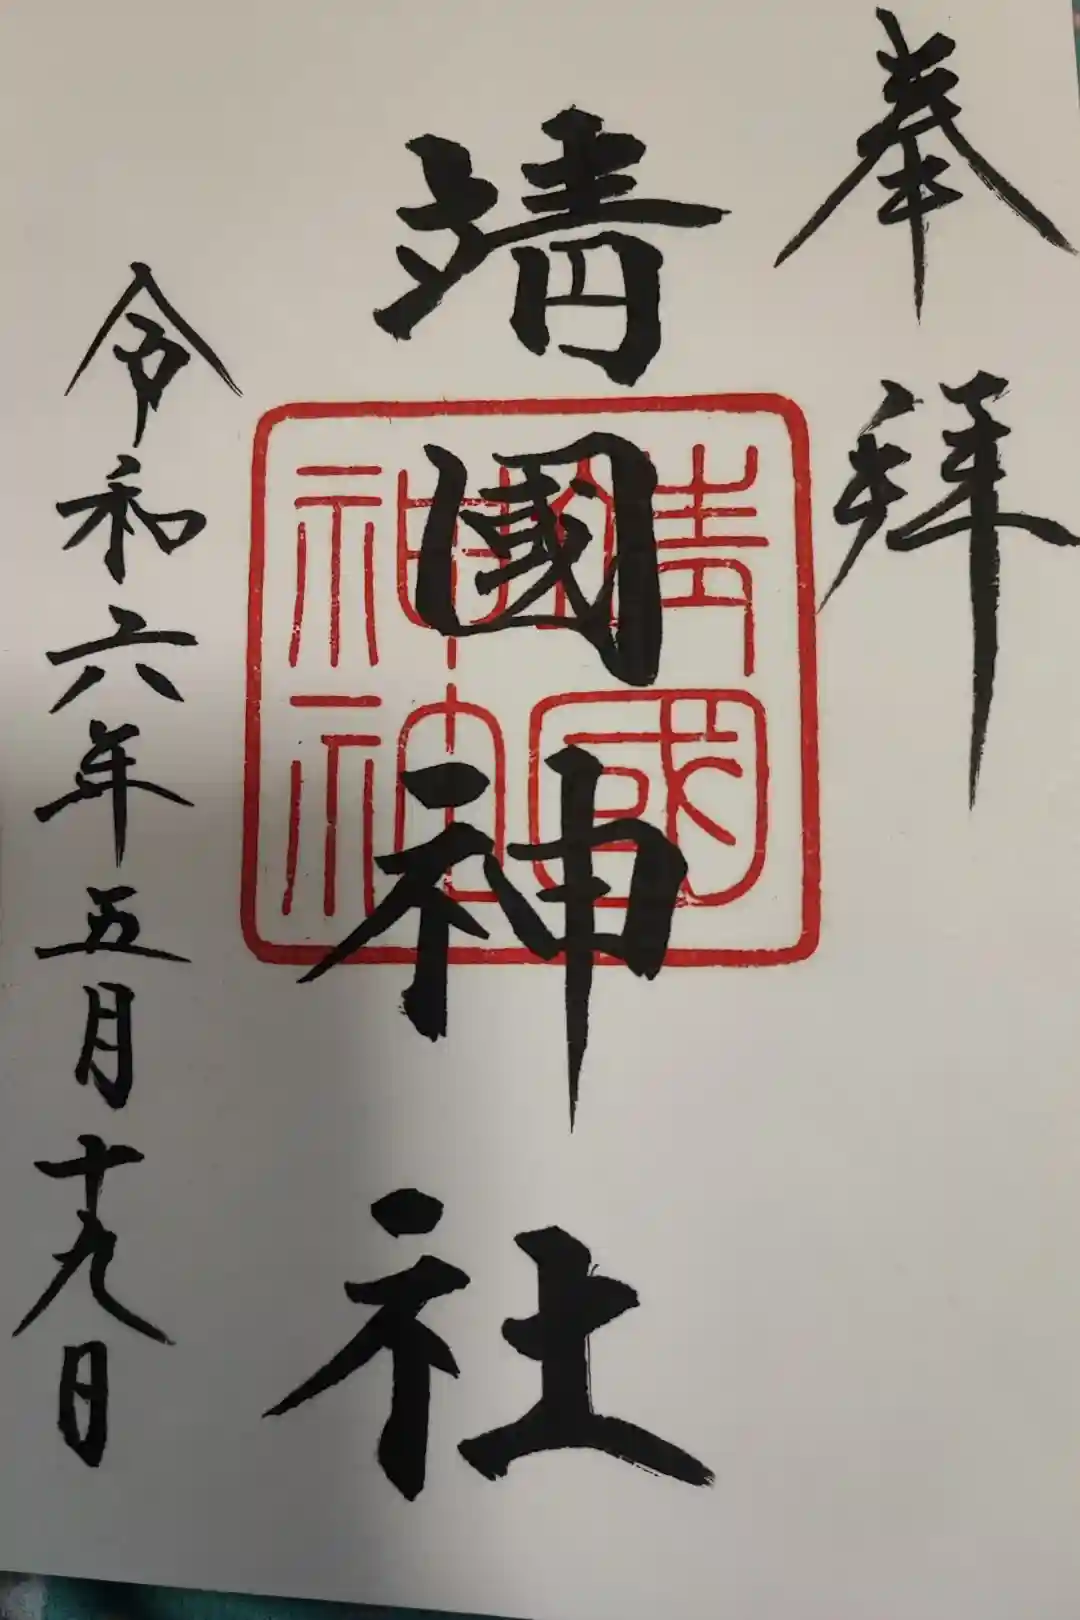 奉拝
靖國神社
靖國神社
令和六年五月十九日